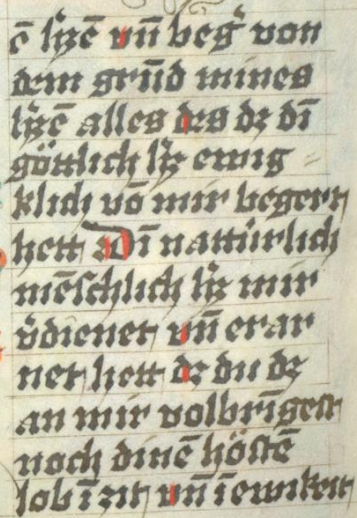 ē h̓zē vn̄ beg̓ von
dem grūd mines
h̓zē alles des dz dī
göttlich h̓z ewig =
klich vō mir begert
hett Dī nattürlich
mēschlich h̓z mir
v̓dienet vn̄ erar
net hett dz du dz
an mir volbrīgest
noch dinē höstē
lob ī zit vn̄ ī ewikeit